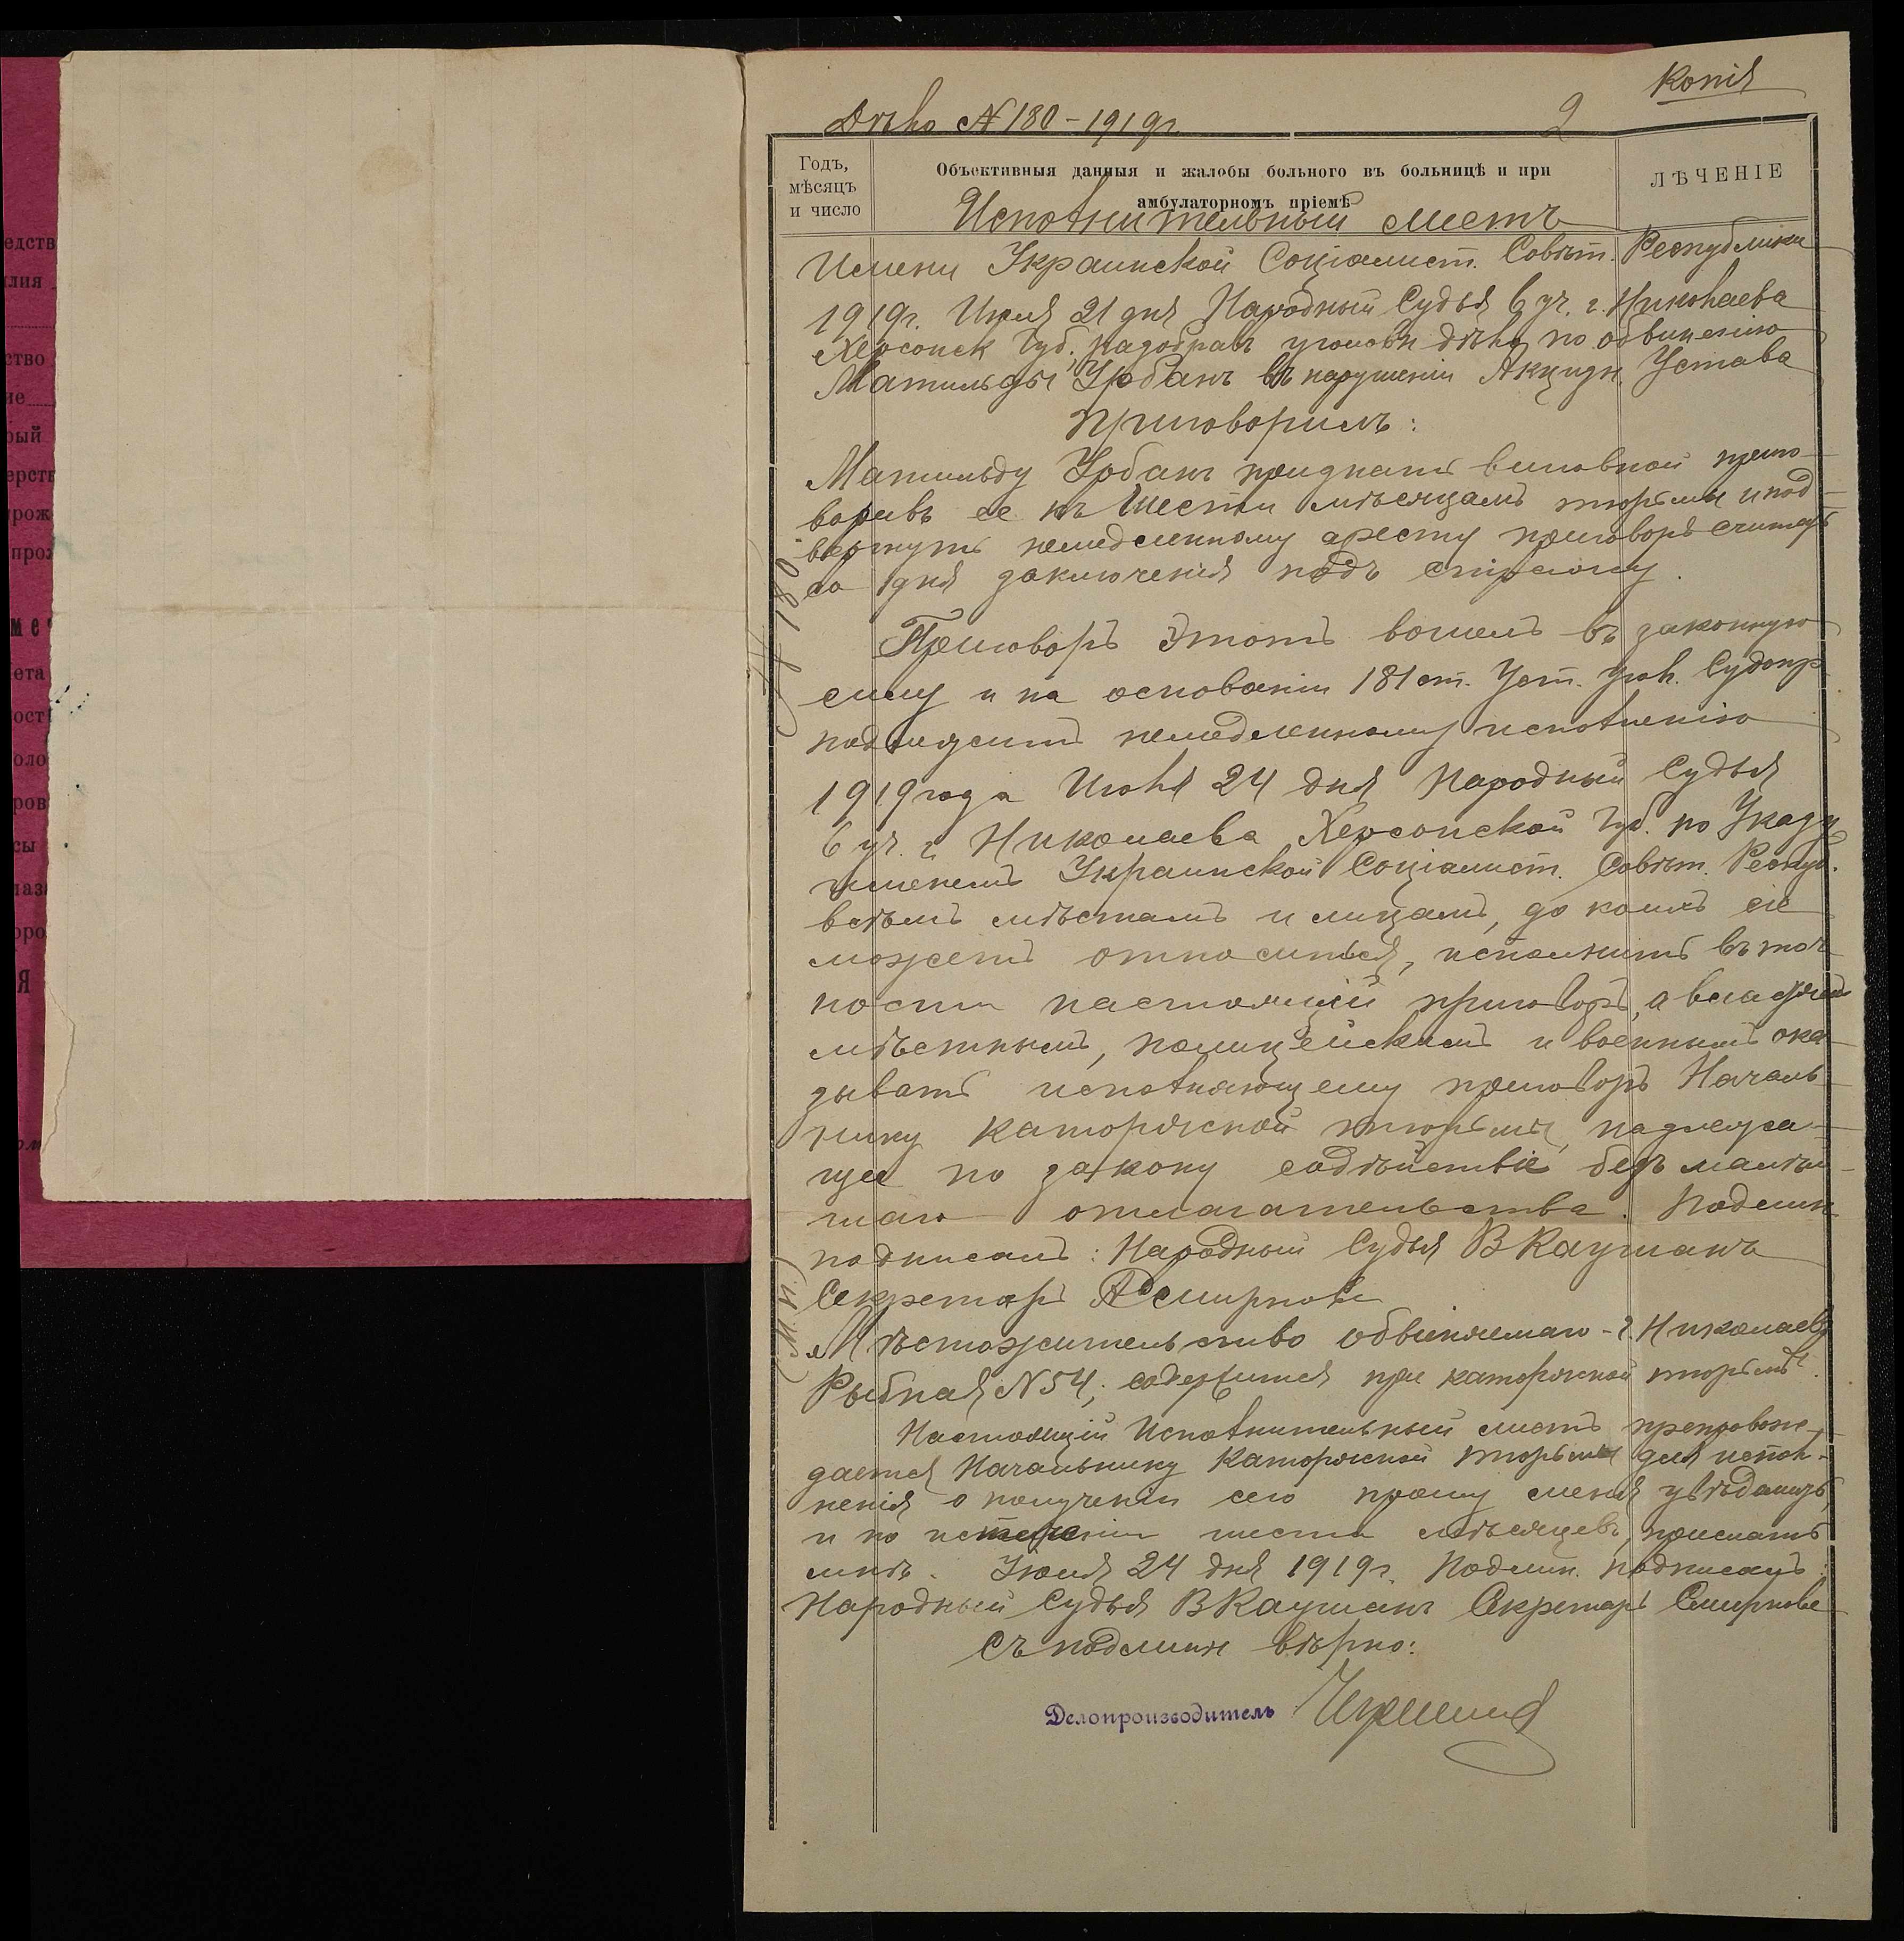 Копія
Дѣло № 180 - 1919 г.
2
Годъ,
мѣсяцъ
и число
Объективныя данныя и жалобы больного въ больницѣ и при
амбулаторномъ пріемѣ
ЛѢЧЕНІЕ
Исполнительный листъ
Имени Украинской Соціалист. Совѣт. Республики
1919 г. Июля 21 дня Народный Судья 6 уч. г. Николаева
Херсонск Губ., разобравъ уголовн дѣло по обвиненію
Матильды Урбанъ въ нарушеніи Акцизн. Устава
приговорилъ:
Матильду Урбанъ признать виновной приго-
воривъ ее къ шести мѣсяцамъ тюрьмы и под-
вергнуть немедленному аресту приговоръ считать
со дня заключенія подъ стражу.
№ 180
Приговоръ этотъ вошелъ въ законную
силу и на основаніи 181 ст. Уст. Угол. Судопр
подлежитъ немедленному исполненію
1919 года Июля 24 дня Народный Судья
6 уч. г. Николаева Херсонской Губ. по Указу
именемъ Украинской Соціалист. Совѣт. Респуб.
всѣмъ мѣстамъ и лицамъ, до коихъ сіе
можетъ относиться, исполнить въ точ-
ности настоящій приговоръ, а властямъ
мѣстнымъ, полицейскимъ и военнымъ ока-
зывать исполняющему приговоръ Началь-
нику каторжной тюрьмы, надлежа-
щее по закону содѣйствіе безъ малѣй-
шаго отлагательства. Подлин
подписалъ: Народный Судья В Кауманъ
Секретарь А Смирновъ
(М. П.)
Мѣстожительство обвиняемаго - г. Николаевъ
Рыбная № 54; содержится при каторжной тюрьмѣ.
Настоящій Исполнительный листъ препровож-
дается Начальнику Каторжной тюрьмы для испол-
ненія о полученіи сего прошу меня увѣдомить,
и по истеченіи шести мѣсяцевъ, прислать
мнѣ. Іюля 24 дня 1919 г. Подлин. подписалъ:
Народный Судья В Кауманъ Секретарь Смирновъ
Съ подлин вѣрно:
Делопроизводитель